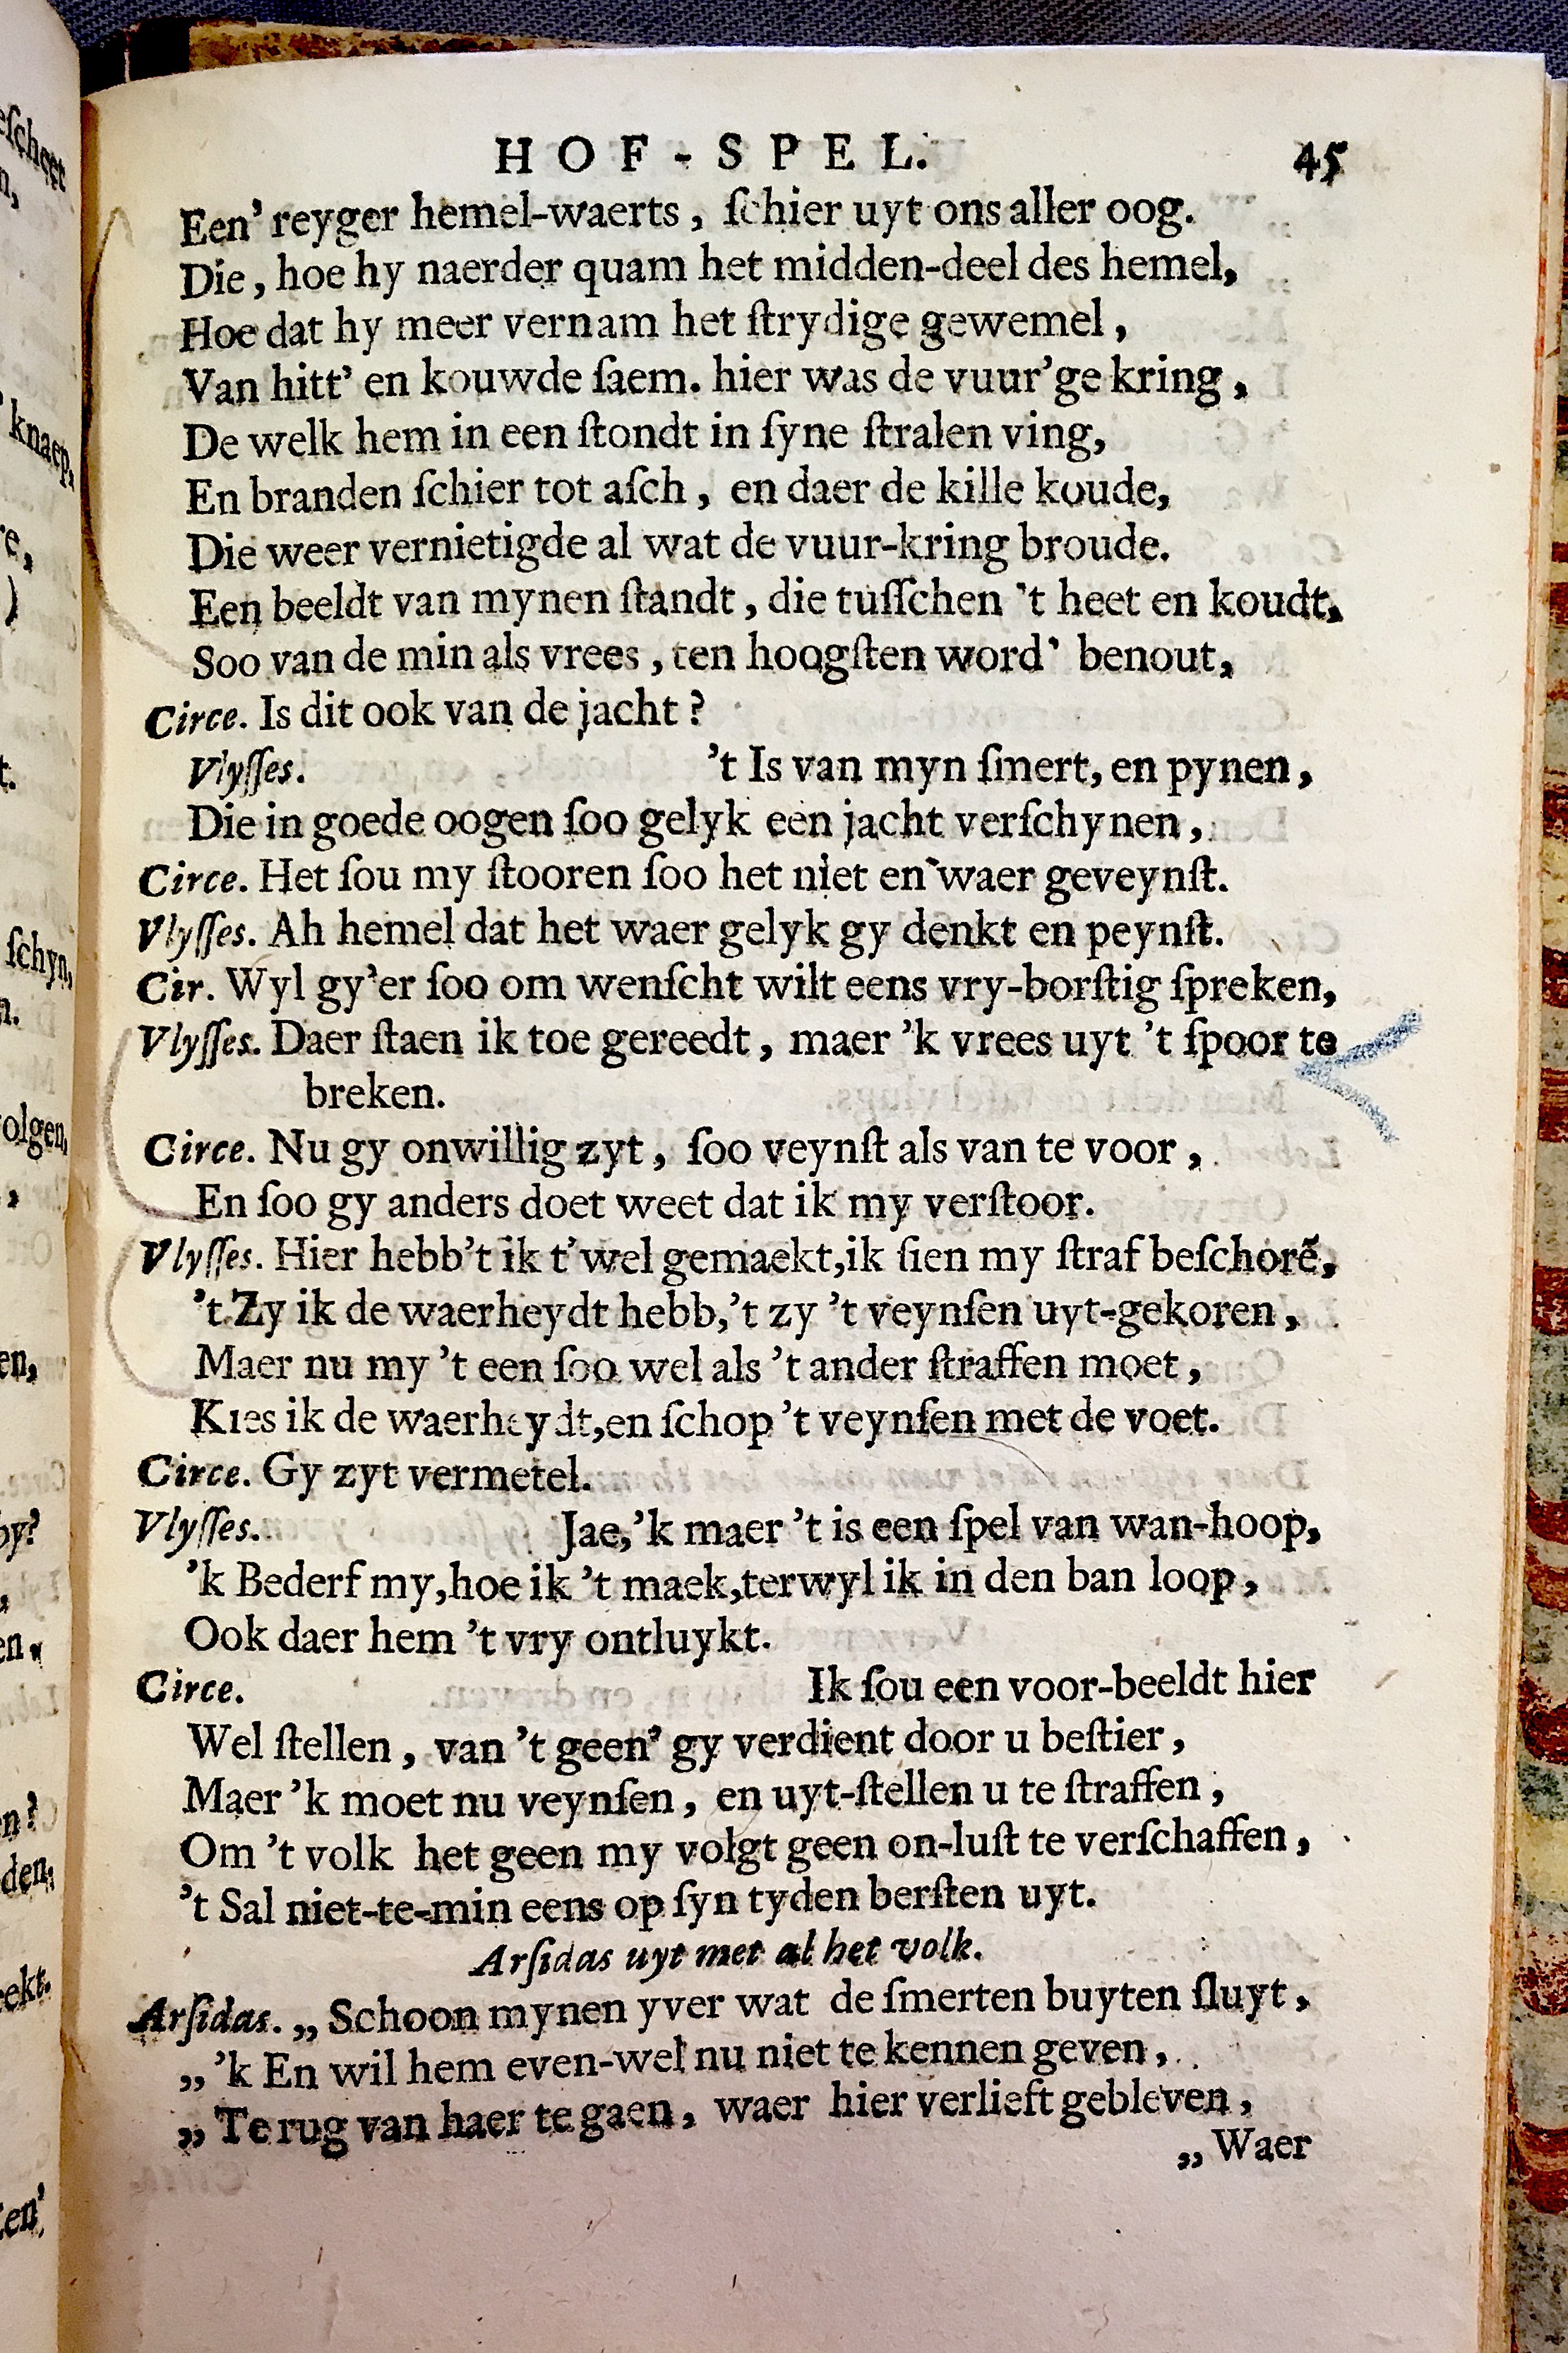 HOF-SPEL. 45
Een' reyger hemel-waerts, ſchier uyt ons aller oog.
Die, hoe hy naerder quam het midden-deel des hemel,
Hoe dat hy meer vernam het ſtrydige gewemel,
Van hitt' en kouwde ſaem. hier was de vuur'ge kring,
De welk hem in een ſtondt in ſyne ſtralen ving,
En branden ſchier tot aſch, en daer de kille koude,
Die weer vernietigde al wat de vuur-kring broude.
Een beeldt van mynen ſtandt, die tuſſchen 't heet en koudt,
Soo van de min als vrees, ten hoogſten word' benout,
Circe. Is dit ook van de jacht?
Vlyſſes. 't Is van myn ſmert, en pynen,
Die in goede oogen ſoo gelyk een jacht verſchynen,
Circe. Het ſou my ſtooren ſoo het niet en waer geveynſt.
Vlyſſes. Ah hemel dat het waer gelyk gy denkt en peynſt.
Cir. Wyl gy'er ſoo om wenſcht wilt eens vry-borſtig ſpreken,
Vlyſſes. Daer ſtaen ik toe gereedt, maer 'k vrees uyt 't ſpoor te
breken.
Circe. Nu gy onwillig zyt, ſoo veynſt als van te voor,
En ſoo gy anders doet weet dat ik my verſtoor.
Vlyſſes. Hier hebb't ik t'wel gemaekt,ik ſien my ſtraf beſchorẽ,
't Zy ik de waerheydt hebb,'t zy 't veynſen uyt-gekoren,
Maer nu my 't een ſoo wel als 't ander ſtraffen moet,
Kies ik de waerheydt,en ſchop 't veynſen met de voet.
Circe. Gy zyt vermetel.
Vlyſſes. Jae,'k maer 't is een ſpel van wan-hoop,
'k Bederf my,hoe ik 't maek,terwyl ik in den ban loop,
Ook daer hem 't vry ontluykt.
Circe. Ik ſou een voor-beeldt hier
Wel ſtellen, van 't geen' gy verdient door u beſtier,
Maer 'k moet nu veynſen, en uyt-ſtellen u te ſtraffen,
Om 't volk het geen my volgt geen on-luſt te verſchaffen,
't Sal niet-te-min eens op ſyn tyden berſten uyt.
Arſidas uyt met al het volk.
Arſidas. „ Schoon mynen yver wat de ſmerten buyten ſluyt,
„ 'k En wil hem even-wel nu niet te kennen geven,
„ Te rug van haer te gaen, waer hier verlieft gebleven,
„ Waer